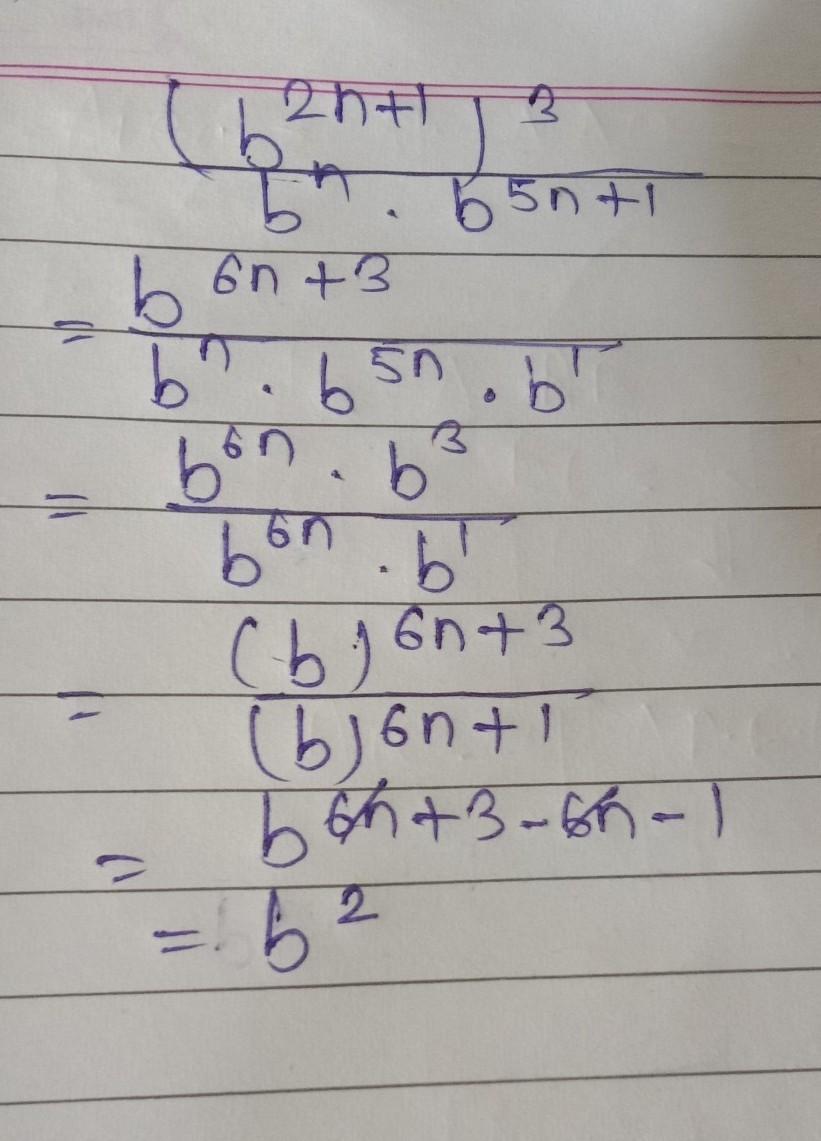 (b^{2n+1})^3
b^n . b^{5n+1}
= b^{6n+3}
b^n . b^{5n} . b^1
= b^{6n} . b^3
b^{6n} . b^1
= (b)^{6n+3}
(b)^{6n+1}
= b^{6n+3-6n-1}
= b^2